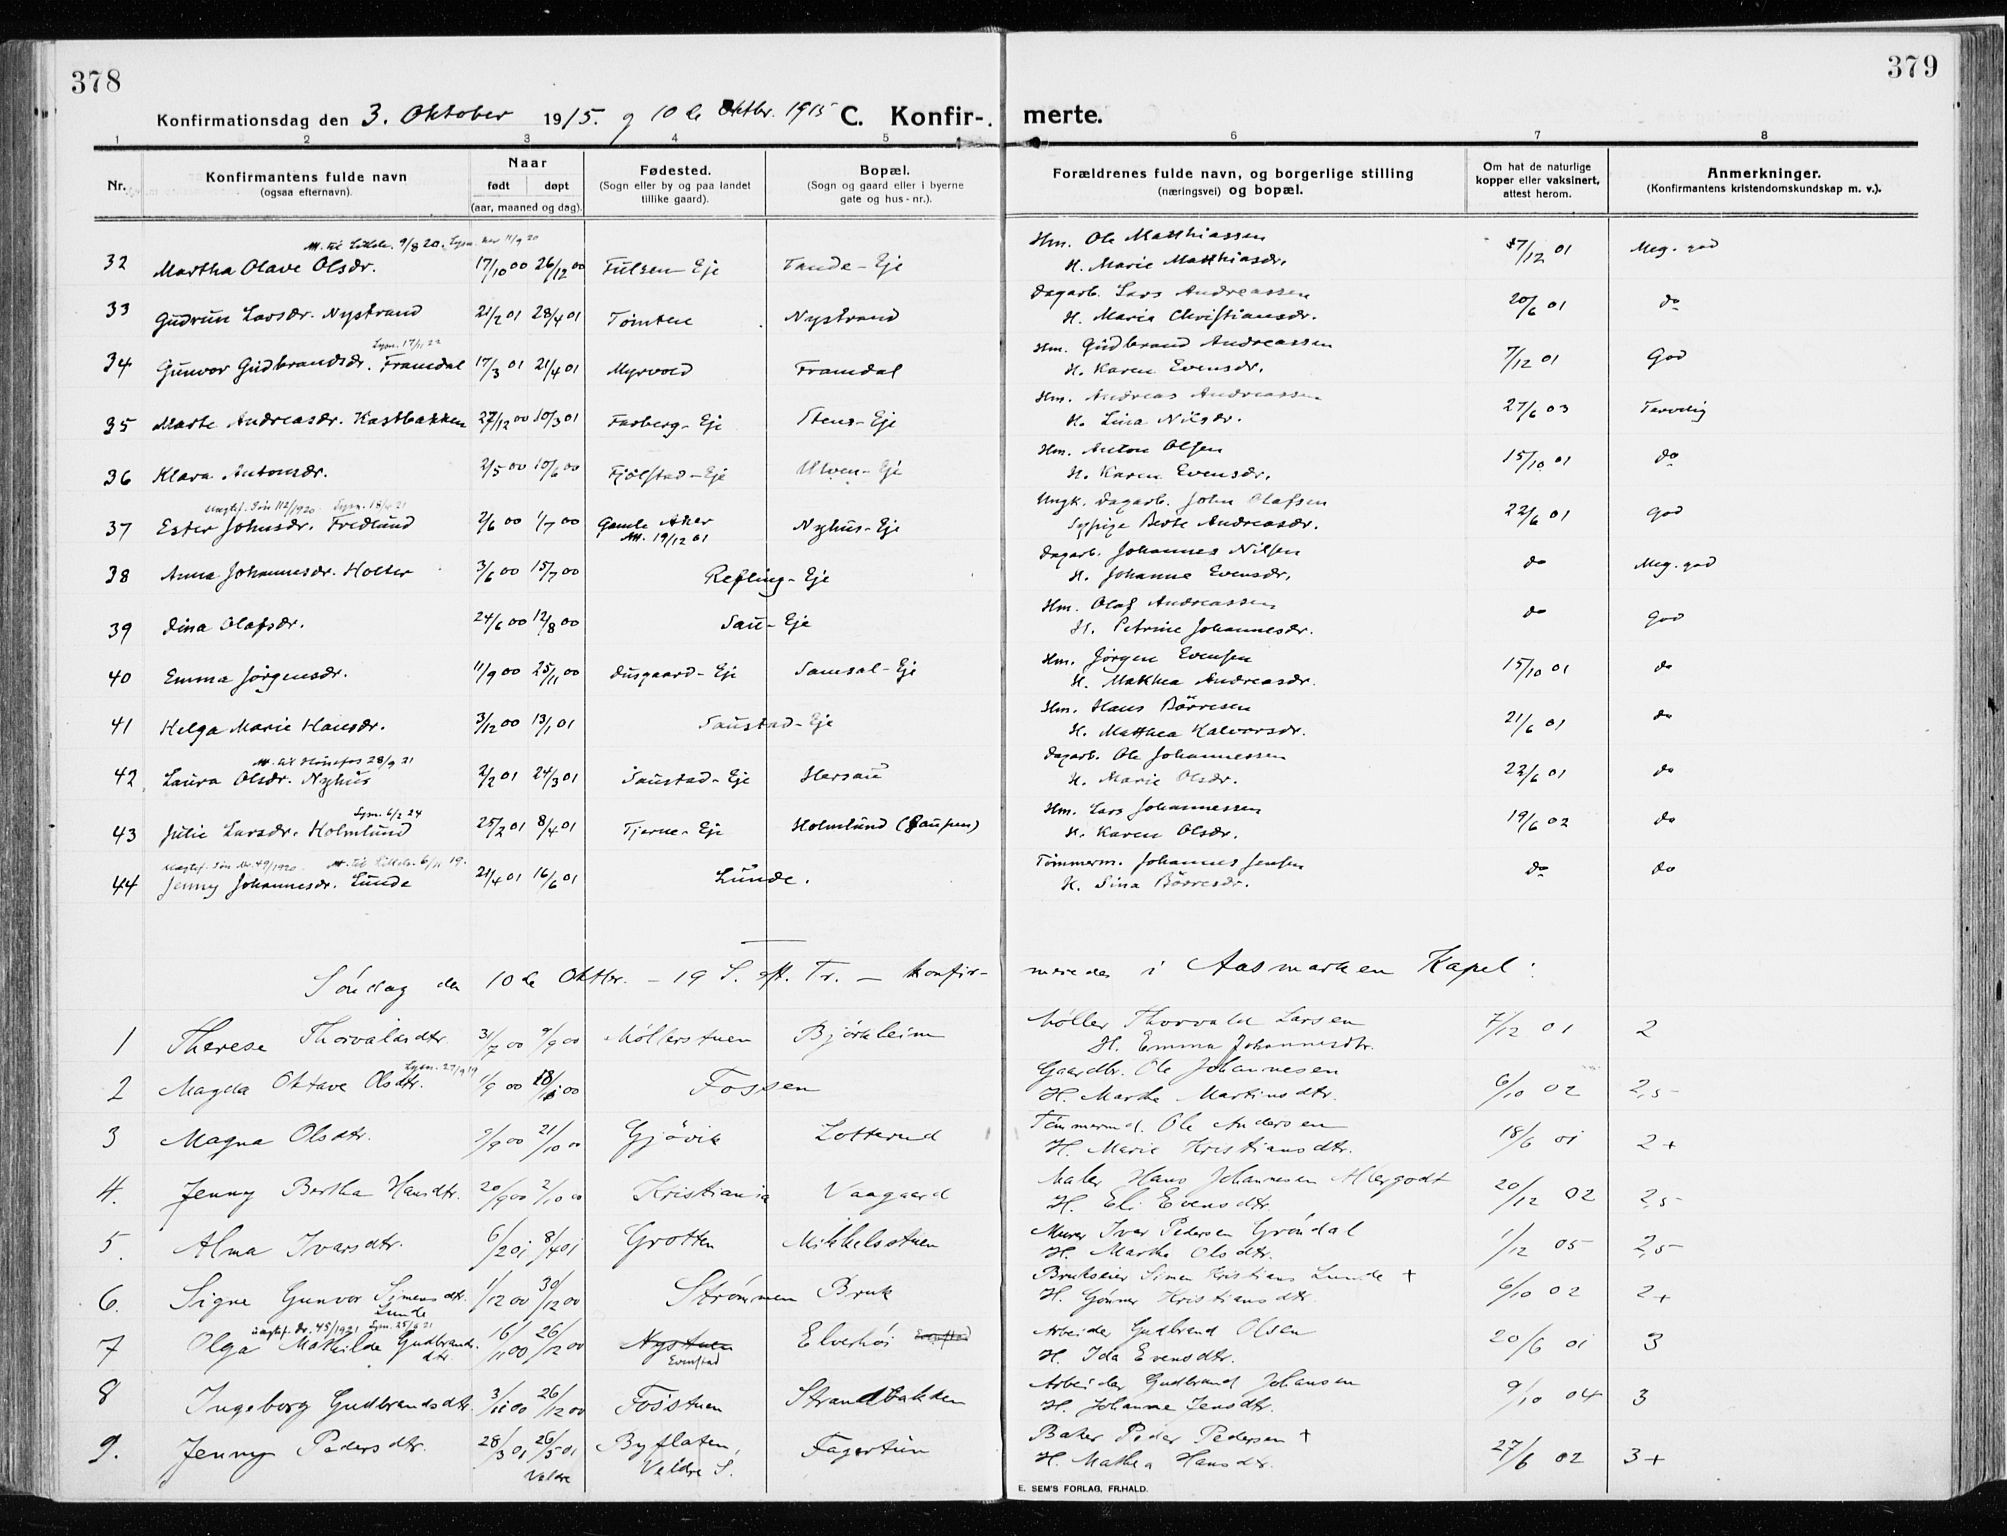 378
379
Konfirmationsdag den 3. Oktober 1915. og 10de Oktbr. 1915 C. Konfir- merte.
1 2 3 4 5 6 7 8
Nr.
Konfirmantens fulde navn
(ogsaa efternavn).
Naar
født døpt
(aar, maaned og dag).
Fødested.
(Sogn eller by og paa landet
tillike gaard).
Bopæl.
(Sogn og gaard eller i byerne
gate og hus-nr.).
Forældrenes fulde navn, og borgerlige stilling
(næringsvei) og bopæl.
Om hat de naturlige
kopper eller vaksinert,
attest herom.
Anmerkninger.
(Konfirmantens kristendomskundskap m. v.).
Hm. Ole Matthiassen
32 Martha Olave Olsdr. 17/10 00 26/12 00 Fulsen-Eje Tande-Eje H. Marie Matthiasdr. 7/12 01 Meg. god
Dagarb. Lars Andreassen
33 Gudrun Larsdr. Nystrand 21/2 01 28/4 01 Tomten Nystrand H. Maria Christiansdr. 20/6 01 do
Lysn. 17/11 22
Hm. Gudbrand Andreassen
34 Gunvor Gudbrandsdr. Framdal 17/3 01 21/4 01 Myrvold Framdal H. Karen Evensdr. 7/12 01 God
Hm. Andreas Andreassen
35 Marte Andreasdr. Kastbakken 27/12 00 10/3 01 Farberg-Eje Stens-Eje H. Lina Nilsdr. 27/6 03 Tarvelig
Hm. Anton Olsen
36 Klara Antonsdr. 2/5 00 10/6 00 Fjölstad-Eje Ulven-Eje H. Karen Evensdr. 15/10 01 do
Ungk. Dagarb. John Olafsen
37 Ester Johnsdr. Fredlund 2/6 00 1/7 00 Gamle Aker Nyhus-Eje Att. 19/12 01 Berte Andreasdr. 22/6 01 God
Dagarb. Johannes Nilsen
38 Anna Johannesdr. Holter 3/6 00 15/7 00 Refling-Eje H. Johanne Evensdr. do Meg. god
Hm. Olaf Andreassen
39 Dina Olafsdr. 24/6 00 12/8 00 Sau-Eje H. Petrine Johannesdr. do God
Hm. Jørgen Evensen
40 Emma Jørgensdr. 11/9 00 25/11 00 Dusgaard-Eje Samsal-Eje H. Mathea Andreasdr. 15/10 01 do
Hm. Hans Börresen
41 Helga Marie Hansdr. 3/12 00 13/1 01 Saustad-Eje H. Mathea Halvorsdr. 21/6 01 do
Att. til Hönefos 28/9 21
Dagarb. Ole Johannessen
42 Laura Olsdr. Nyhus 2/2 01 24/3 01 Saustad-Eje Hersau H. Marie Olsdr. 22/6 01 do
Lysn. 6/2 24
Hm. Lars Johannessen
43 Julie Larsdr. Holmlund 25/2 01 8/4 01 Tjerne-Eje Holmlund H. Karen Olsdr. 19/6 02 do
Tömmerm. Johannes Jensen
44 Jenny Johannesdr. Lunde 21/4 01 16/6 01 Lunde. H. Sina Börresdr. do do
Søndag den 10de Oktbr. - 19 S. eft. Tr. - konfir- meredes i Aasmarken Kapel:
Møller Thorvald Larsen
1 Therese Thorvaldsdtr. 31/7 00 9/9 00 Møllerstuen Bjørkheim H. Emma Johannesdtr. 7/12 01 2
Lysn. 27/9 19
Gaardbr. Ole Johannesen
2 Magda Oktave Olsdtr. 1/9 00 Fossen H. Marthe Martinsdtr. 6/10 02 2,5
Tømmermd. Ole Andersen
3 Magna Olsdtr. 2/9 00 21/10 00 Gjøvik Lotterud H. Marie Kristiansdtr. 18/6 01 2+
Maler Hans Johannesen Allergodt
4. Jenny Bertha Hansdtr. 20/9 00 2/10 00 Kristiania Vaagaard H. Eli Evensdtr. 20/12 02 2,5
Murer Ivar Pedersen Grøndal
5. Alma Ivarsdtr. 6/2 01 8/4 01 Grotten Mikkelsstuen H. Marthe Olsdtr. 1/12 05 2,5
Brukseier Simen Kristians Lunde +
6. Signe Gunvor Simensdtr. Lunde 1/12 00 30/12 00 Strømmen Bruk H. Gunner Kristiansdtr. 6/10 02 2+
Arbeider Gudbrand Olsen
7 Olga Mathilde Gudbrandsdtr. 16/11 00 26/12 00 Nystuen Evenstad Elverhøi H. Ida Evensdtr. 20/6 01 3
Arbeider Gudbrand Johansen
8 Ingeborg Gudbrandsdtr. 3/11 00 26/12 00 Fosstuen Strandbakken H. Johanne Jensdtr. 9/10 04 3
Baker Peder Pedersen +
9. Jenny Pedersdtr. 28/3 01 26/5 01 Veldre Byflaten, Veldre S. Fagertun H. Mathea Hansdtr. 27/6 02 3+
E. SEM'S FORLAG, FR.HALD.